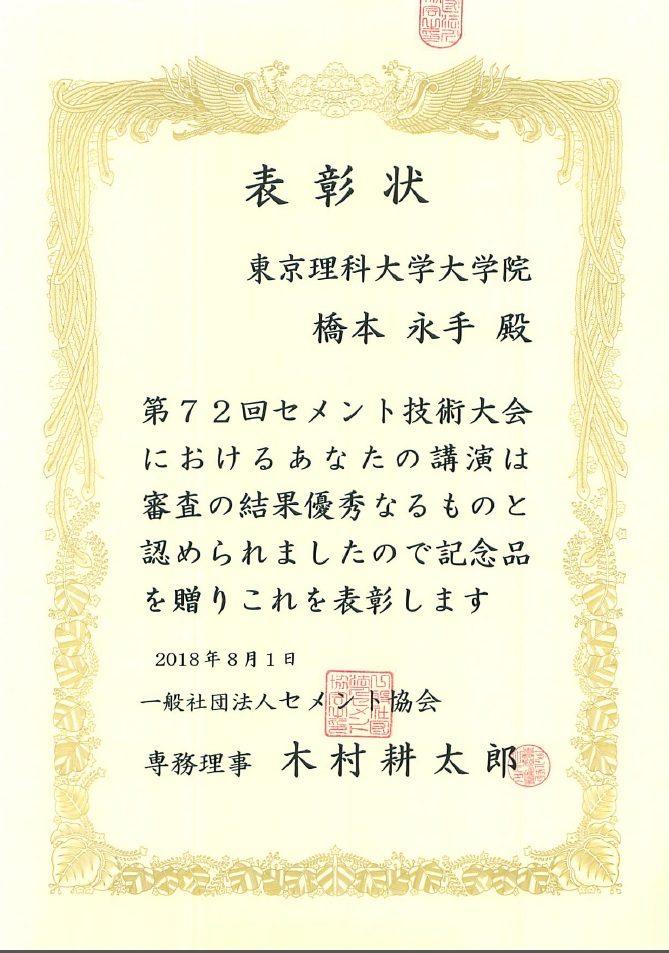 表彰状
東京理科大学大学院
橋本 永手 殿
第72回セメント技術大会
におけるあなたの講演は
審査の結果優秀なるものと
認められましたので記念品
を贈りこれを表彰します
2018年8月1日
一般社団法人セメント協会
専務理事 木村耕太郎